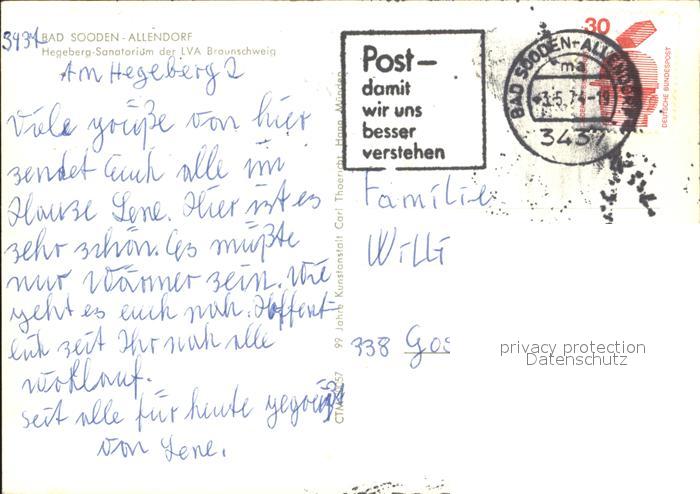 3437 BAD SOODEN-ALLENDORF
Hegeberg-Sanatorium der LVA Braunschweig
Am Hegeberg 2
Viele grüße von hier
sendet Euch alle im
Hause Lene. Hier ist es
sehr schön. Es müßte
nur Wärmer sein. Wie
geht es euch noh. Hoffent-
lich seit Ihr noh alle
wohlauf.
seit alle für heute gegrüßt
von Lene.
99 Jahre Kunstanstalt Carl Thoericht, Hann. Münden
Post-
damit
wir uns
besser
verstehen
BAD SOODEN-ALLENDORF
ma
-3.5.74-19
3437
30
DEUTSCHE BUNDESPOST
Familie
Willi
338 Gos
privacy protection
Datenschutz